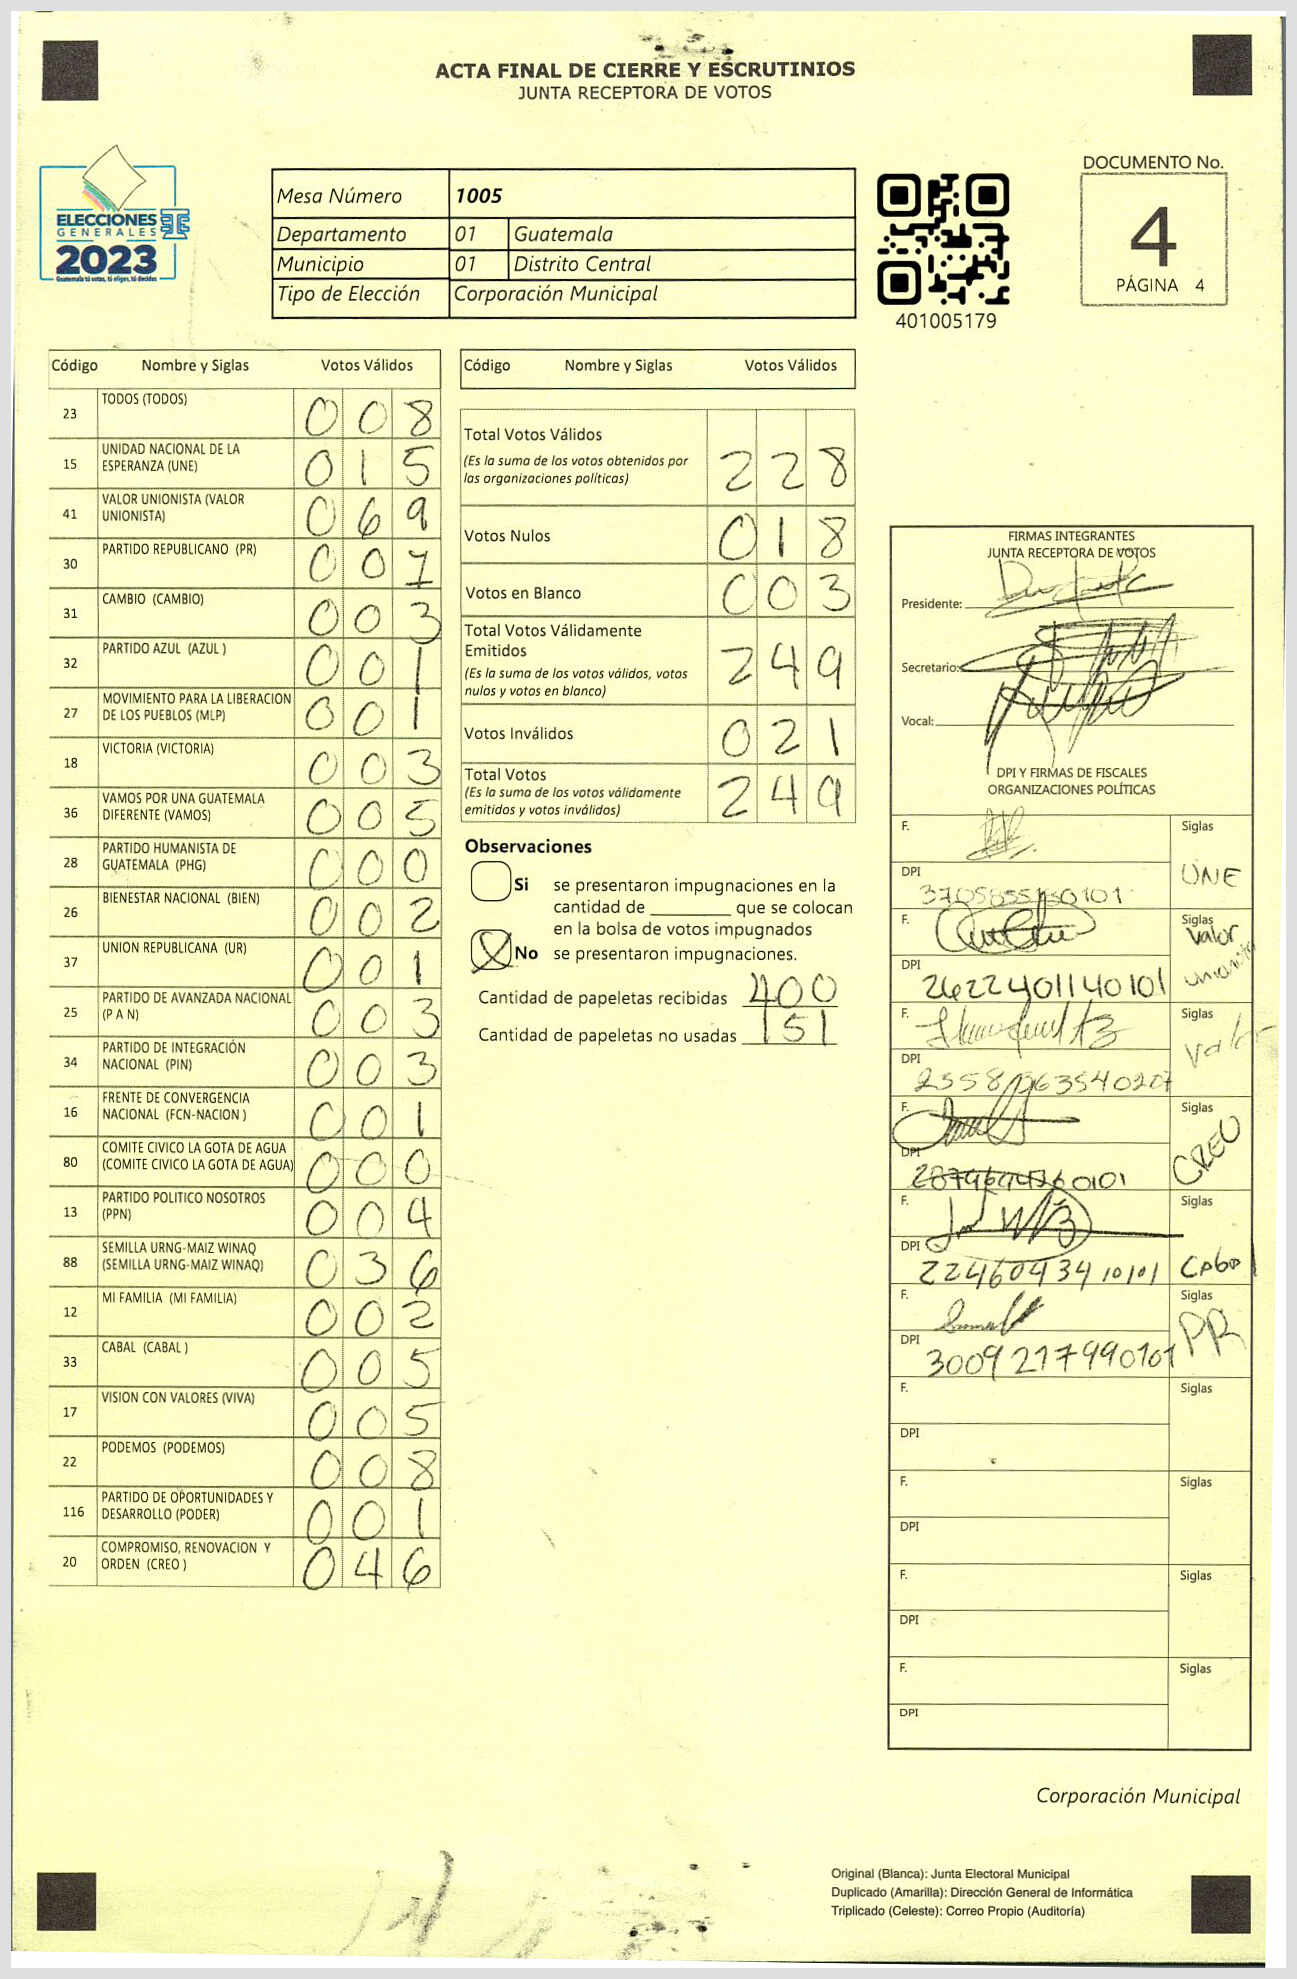 ACTA FINAL DE CIERRE Y ESCRUTINIOS
JUNTA RECEPTORA DE VOTOS
ELECCIONES
GENERALES
2023
Guatemala tú votas, tú eliges, tú decides
Mesa Número 1005
Departamento 01 Guatemala
Municipio 01 Distrito Central
Tipo de Elección Corporación Municipal
401005179
DOCUMENTO No.
4
PÁGINA 4
Código Nombre y Siglas Votos Válidos
23 TODOS (TODOS) 008
15 UNIDAD NACIONAL DE LA
ESPERANZA (UNE) 015
41 VALOR UNIONISTA (VALOR
UNIONISTA) 069
30 PARTIDO REPUBLICANO (PR) 007
31 CAMBIO (CAMBIO) 003
32 PARTIDO AZUL (AZUL ) 001
27 MOVIMIENTO PARA LA LIBERACION
DE LOS PUEBLOS (MLP) 001
18 VICTORIA (VICTORIA) 003
36 VAMOS POR UNA GUATEMALA
DIFERENTE (VAMOS) 005
28 PARTIDO HUMANISTA DE
GUATEMALA (PHG) 000
26 BIENESTAR NACIONAL (BIEN) 002
37 UNION REPUBLICANA (UR) 001
25 PARTIDO DE AVANZADA NACIONAL
(P A N) 003
34 PARTIDO DE INTEGRACIÓN
NACIONAL (PIN) 003
16 FRENTE DE CONVERGENCIA
NACIONAL (FCN-NACION ) 001
80 COMITE CIVICO LA GOTA DE AGUA
(COMITE CIVICO LA GOTA DE AGUA) 000
13 PARTIDO POLITICO NOSOTROS
(PPN) 004
88 SEMILLA URNG-MAIZ WINAQ
(SEMILLA URNG-MAIZ WINAQ) 036
12 MI FAMILIA (MI FAMILIA) 002
33 CABAL (CABAL ) 005
17 VISION CON VALORES (VIVA) 005
22 PODEMOS (PODEMOS) 008
116 PARTIDO DE OPORTUNIDADES Y
DESARROLLO (PODER) 001
20 COMPROMISO, RENOVACION Y
ORDEN (CREO ) 046
Código Nombre y Siglas Votos Válidos
Total Votos Válidos
(Es la suma de los votos obtenidos por
las organizaciones políticas) 228
Votos Nulos 018
Votos en Blanco 003
Total Votos Válidamente
Emitidos
(Es la suma de los votos válidos, votos
nulos y votos en blanco) 249
Votos Inválidos 021
Total Votos
(Es la suma de los votos válidamente
emitidos y votos inválidos) 249
Observaciones
Si se presentaron impugnaciones en la
cantidad de ________ que se colocan
en la bolsa de votos impugnados
No se presentaron impugnaciones.
Cantidad de papeletas recibidas 400
Cantidad de papeletas no usadas 151
FIRMAS INTEGRANTES
JUNTA RECEPTORA DE VOTOS
Presidente:
Secretario:
Vocal:
DPI Y FIRMAS DE FISCALES
ORGANIZACIONES POLÍTICAS
F. Siglas
UNE
DPI
F. Siglas
Valor
unionista
DPI
2622401140101
F. Siglas
Valor
DPI
F. Siglas
CREO
DPI
F. Siglas
DPI
2246043410101
F. Siglas
PR
DPI
3009217990101
F. Siglas
DPI
F. Siglas
DPI
F. Siglas
DPI
F. Siglas
DPI
Corporación Municipal
Original (Blanca): Junta Electoral Municipal
Duplicado (Amarilla): Dirección General de Informática
Triplicado (Celeste): Correo Propio (Auditoría)